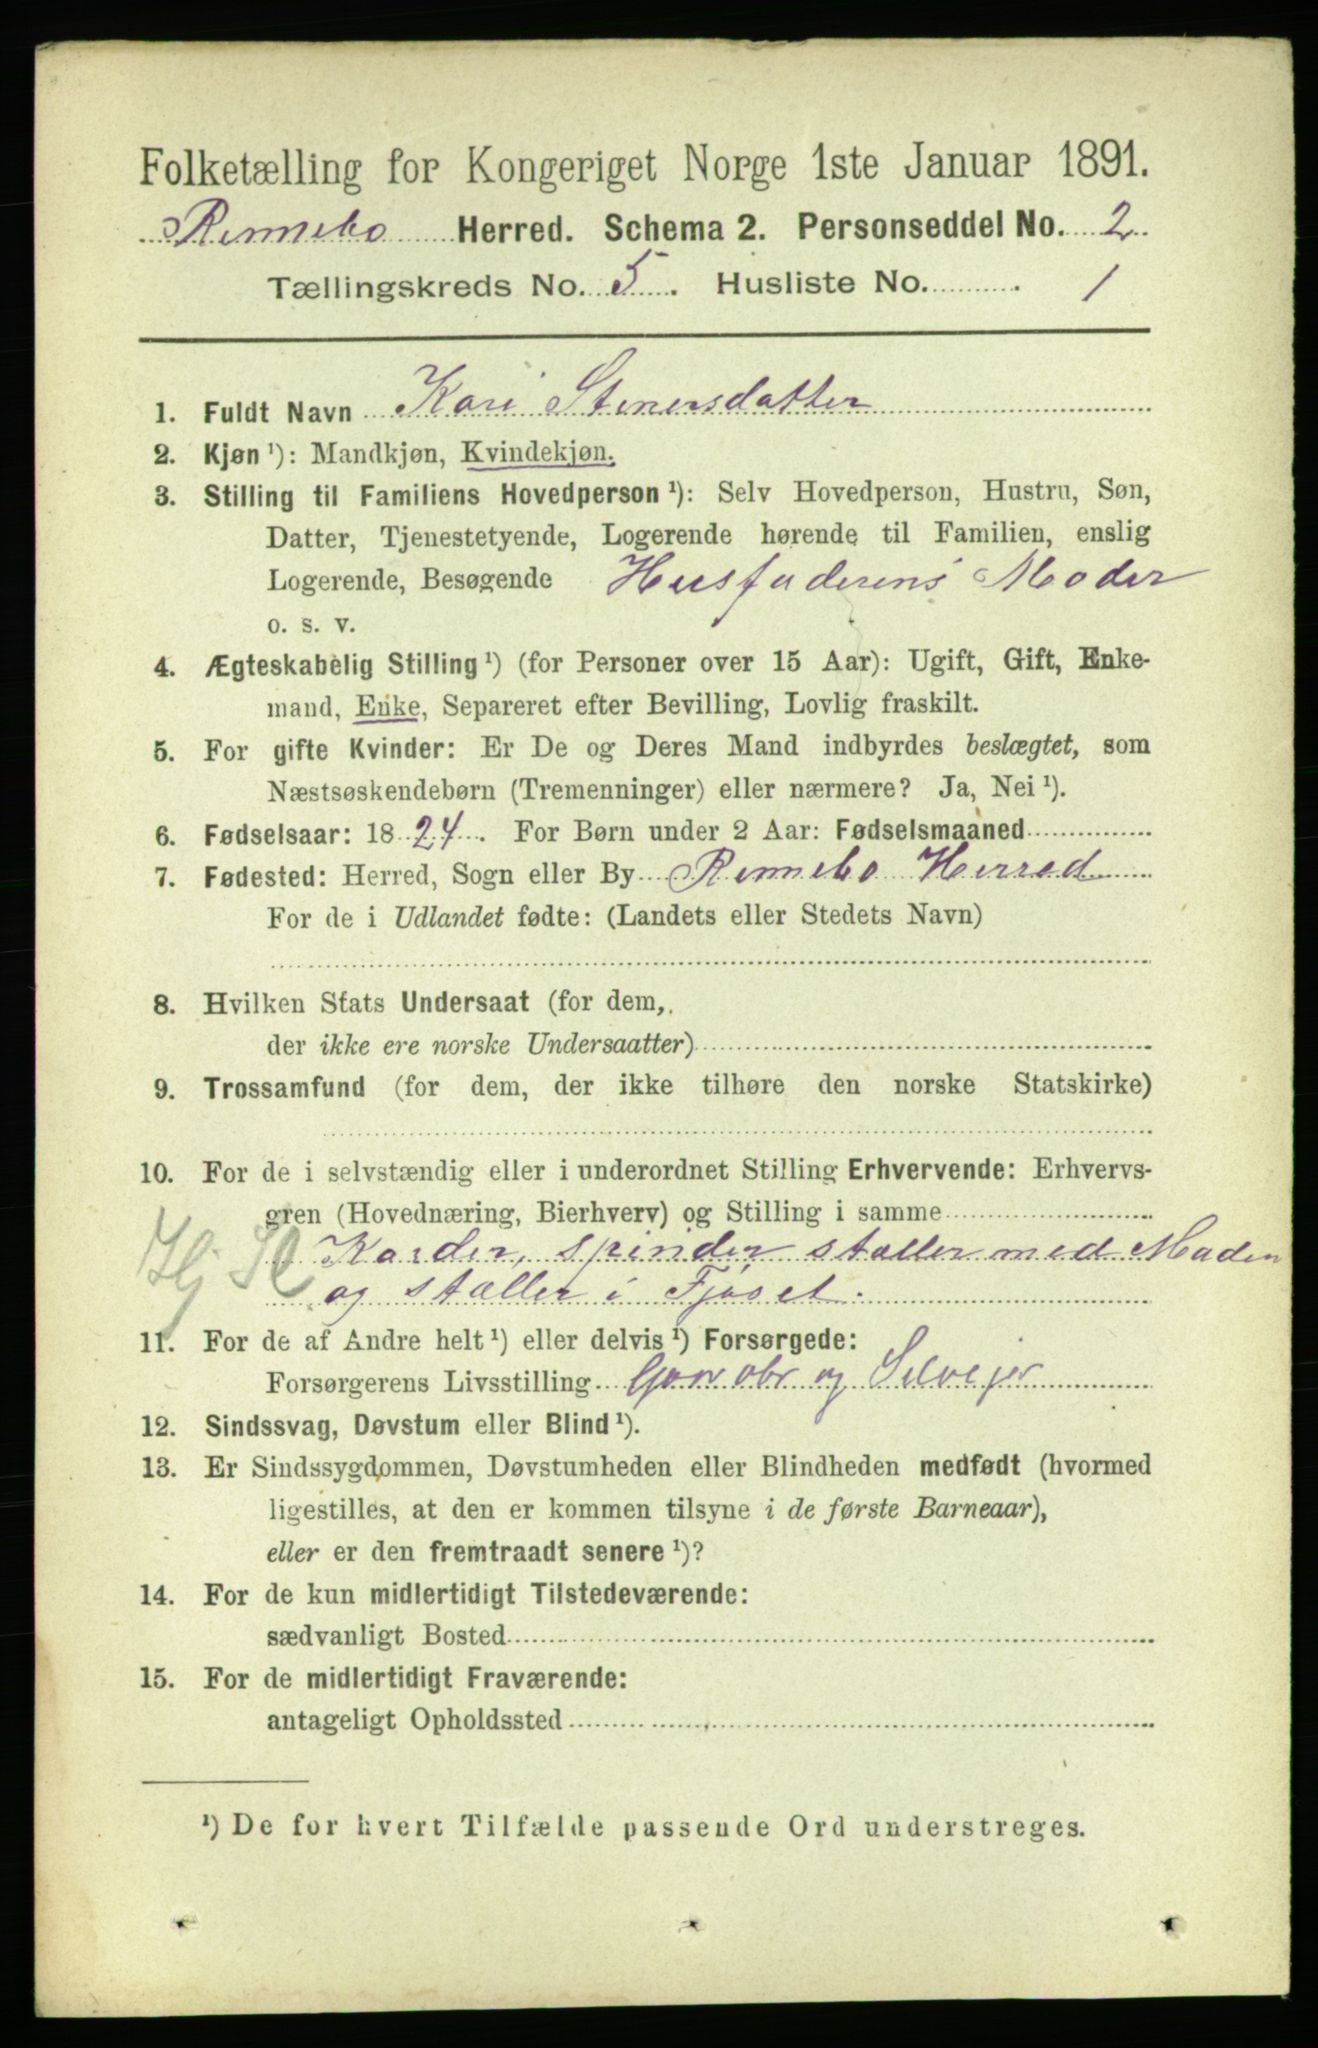 Folketælling for Kongeriget Norge 1ste Januar 1891.
Rennebo Herred. Schema 2. Personseddel No. 2
Tællingskreds No. 5. Husliste No. 1
1. Fuldt Navn Kari Stenersdatter
2. Kjøn¹): Mandkjøn, Kvindekjøn.
3. Stilling til Familiens Hovedperson¹): Selv Hovedperson, Hustru, Søn,
Datter, Tjenestetyende, Logerende hørende til Familien, enslig
Logerende, Besøgende Husfaderens Moder
o. s. v.
4. Ægteskabelig Stilling¹) (for Personer over 15 Aar): Ugift, Gift, Enke-
mand, Enke, Separeret efter Bevilling, Lovlig fraskilt.
5. For gifte Kvinder: Er De og Deres Mand indbyrdes beslægtet, som
Næstsøskendebørn (Tremenninger) eller nærmere? Ja, Nei¹).
6. Fødselsaar: 1824. For Børn under 2 Aar: Fødselsmaaned
7. Fødested: Herred, Sogn eller By Rennebo Herred
For de i Udlandet fødte: (Landets eller Stedets Navn)
8. Hvilken Stats Undersaat (for dem,
der ikke ere norske Undersaatter)
9. Trossamfund (for dem, der ikke tilhøre den norske Statskirke)
10. For de i selvstændig eller i underordnet Stilling Erhvervende: Erhvervs-
gren (Hovednæring, Bierhverv) og Stilling i samme
Karder, spinder stæller med Maden
og stæller i Fjøset.
11. For de af Andre helt¹) eller delvis¹) Forsørgede:
Forsørgerens Livsstilling Gaardbr og Selvejer
12. Sindssvag, Døvstum eller Blind¹).
13. Er Sindssygdommen, Døvstumheden eller Blindheden medfødt (hvormed
ligestilles, at den er kommen tilsyne i de første Barneaar),
eller er den fremtraadt senere¹)?
14. For de kun midlertidigt Tilstedeværende:
sædvanligt Bosted
15. For de midlertidigt Fraværende:
antageligt Opholdssted
¹) De for hvert Tilfælde passende Ord understreges.